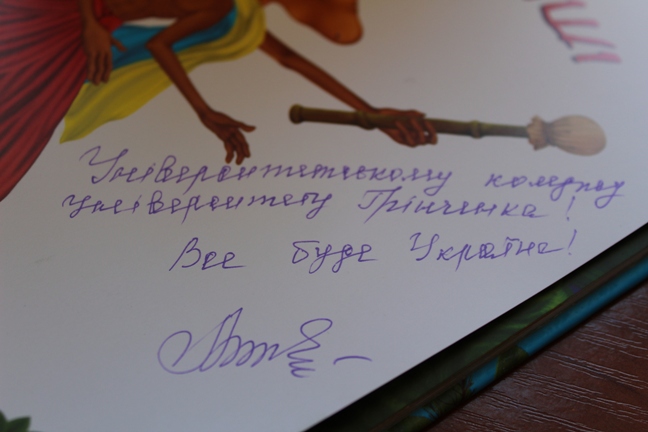 ші
Університетському коледжу
університету Грінченка!
Все буде Україна!